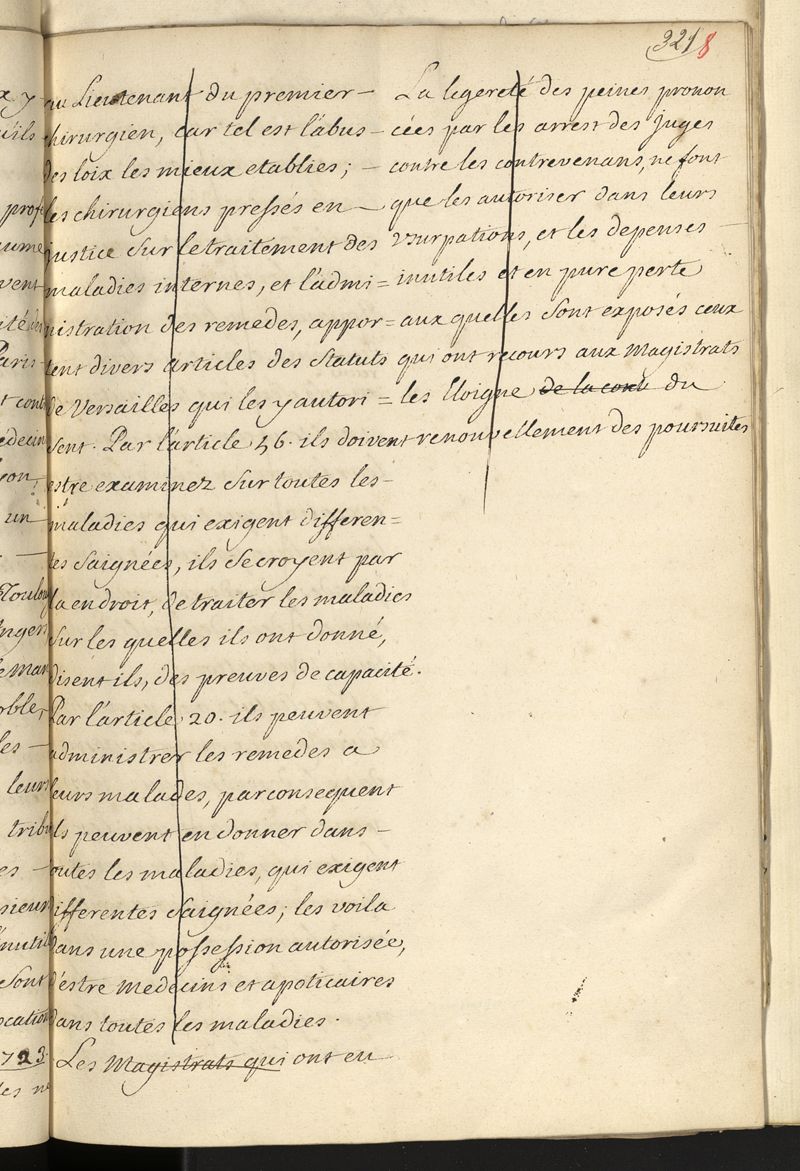 321 8
au Lieutenant du premier –
chirurgien, car tel est l'abus –
des loix les mieux etablies; –
les chirurgiens pressés en –
justice sur le traitement des
maladies internes, et l'admi =
nistration des remedes, appor =
tent divers articles des Statuts
de Versailles qui les y autori =
sent. Par l'article 56. ils doivent
estre examinez sur toutes les –
maladies qui exigent differen =
tes saignées, ils se croyent par
la en droit, de traiter les maladies
sur les quelles ils ont donné,
disent ils, des preuves de capacité.
Par l'article 20. ils peuvent
administrer les remedes a
leurs malades, par consequent
ils peuvent en donner dans –
toutes les maladies, qui exigent
differentes saignées; les voila
dans une possession autorisée,
d'estre medecins et apoticaires
dans toutes les maladies.
Les Magistrats qui ont eu
La legereté des peines pronon
cées par les arrest des Juges
contre les contrevenans, ne font
que les autoriser dans leurs
usurpations, et les depenses –
inutiles et en pure perte
aux quelles sont exposés ceux
qui ont recours aux Magistrats
les Eloigne de la du
renouvellement des poursuites